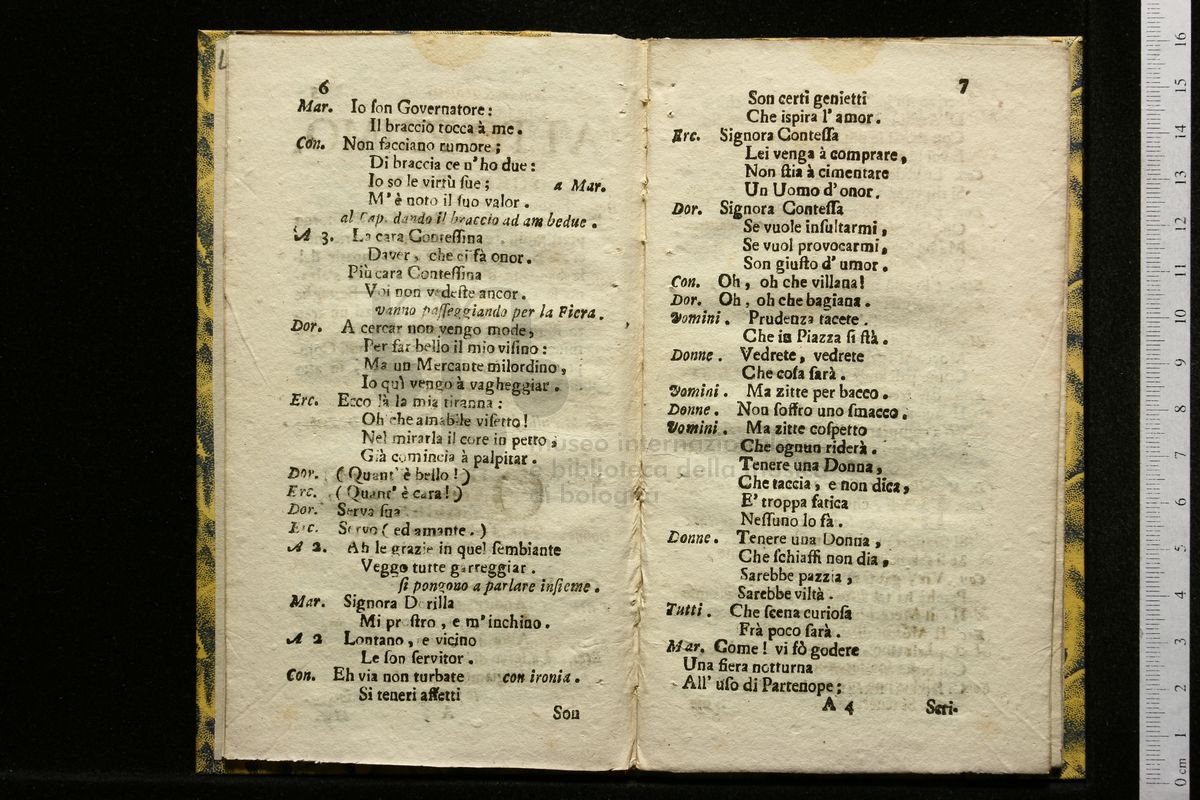 6
Mar. Io ſon Governatore:
Il braccio tocca à me.
Con. Non facciano rumore;
Di braccia ce n'ho due:
Io so le virtù ſue; a Mar.
M'è noto il ſuo valor.
al Cap. dando il braccio ad ambedue.
A 3. La cara Conteſſina
Daver, che ci fà onor.
Più cara Conteſſina
Voi non vedeſte ancor.
vanno paſſeggiando per la Fiera.
Dor. A cercar non vengo mode,
Per far bello il mio viſino:
Ma un Mercante milordino,
Io quì vengo à vagheggiar.
Erc. Ecco là la mia tiranna:
Oh che amabile viſetto!
Nel mirarla il core in petto,
Già comincia à palpitar.
Dor. (Quant' è bello!)
Erc. (Quant' è cara!)
Dor. Serva ſua
Erc. Servo (ed amante.)
A 2. Ah le grazie in quel ſembiante
Veggo tutte garreggiar.
ſi pongono a parlare inſieme.
Mar. Signora Dorilla
Mi proſtro, e m'inchino.
A 2 Lontano, e vicino
Le ſon ſervitor.
Con. Eh via non turbate con ironia.
Si teneri affetti
Son
7
Son certi genietti
Che ispira l'amor.
Erc. Signora Conteſſa
Lei venga à comprare,
Non ſtia à cimentare
Un Uomo d'onor.
Dor. Signora Conteſſa
Se vuole inſultarmi,
Se vuol provocarmi,
Son giuſto d'umor.
Con. Oh, oh che villana!
Dor. Oh, oh che bagiana.
Uomini. Prudenza tacete.
Che in Piazza ſi ſtà.
Donne. Vedrete, vedrete
Che coſa ſarà.
Uomini. Ma zitte per bacco.
Donne. Non ſoffro uno ſmacco.
Uomini. Ma zitte coſpetto
Che ognun riderà.
Tenere una Donna,
Che taccia, e non dica,
E' troppa fatica
Neſſuno lo fà.
Donne. Tenere una Donna,
Che ſchiaffi non dia,
Sarebbe pazzia,
Sarebbe viltà.
Tutti. Che ſcena curioſa
Frà poco ſarà.
Mar. Come! vi fò godere
Una fiera notturna
All' uſo di Partenope;
A 4 Seri-
museo internazionale
e biblioteca della musica
di bologna
0 cm 1 2 3 4 5 6 7 8 9 10 11 12 13 14 15 16